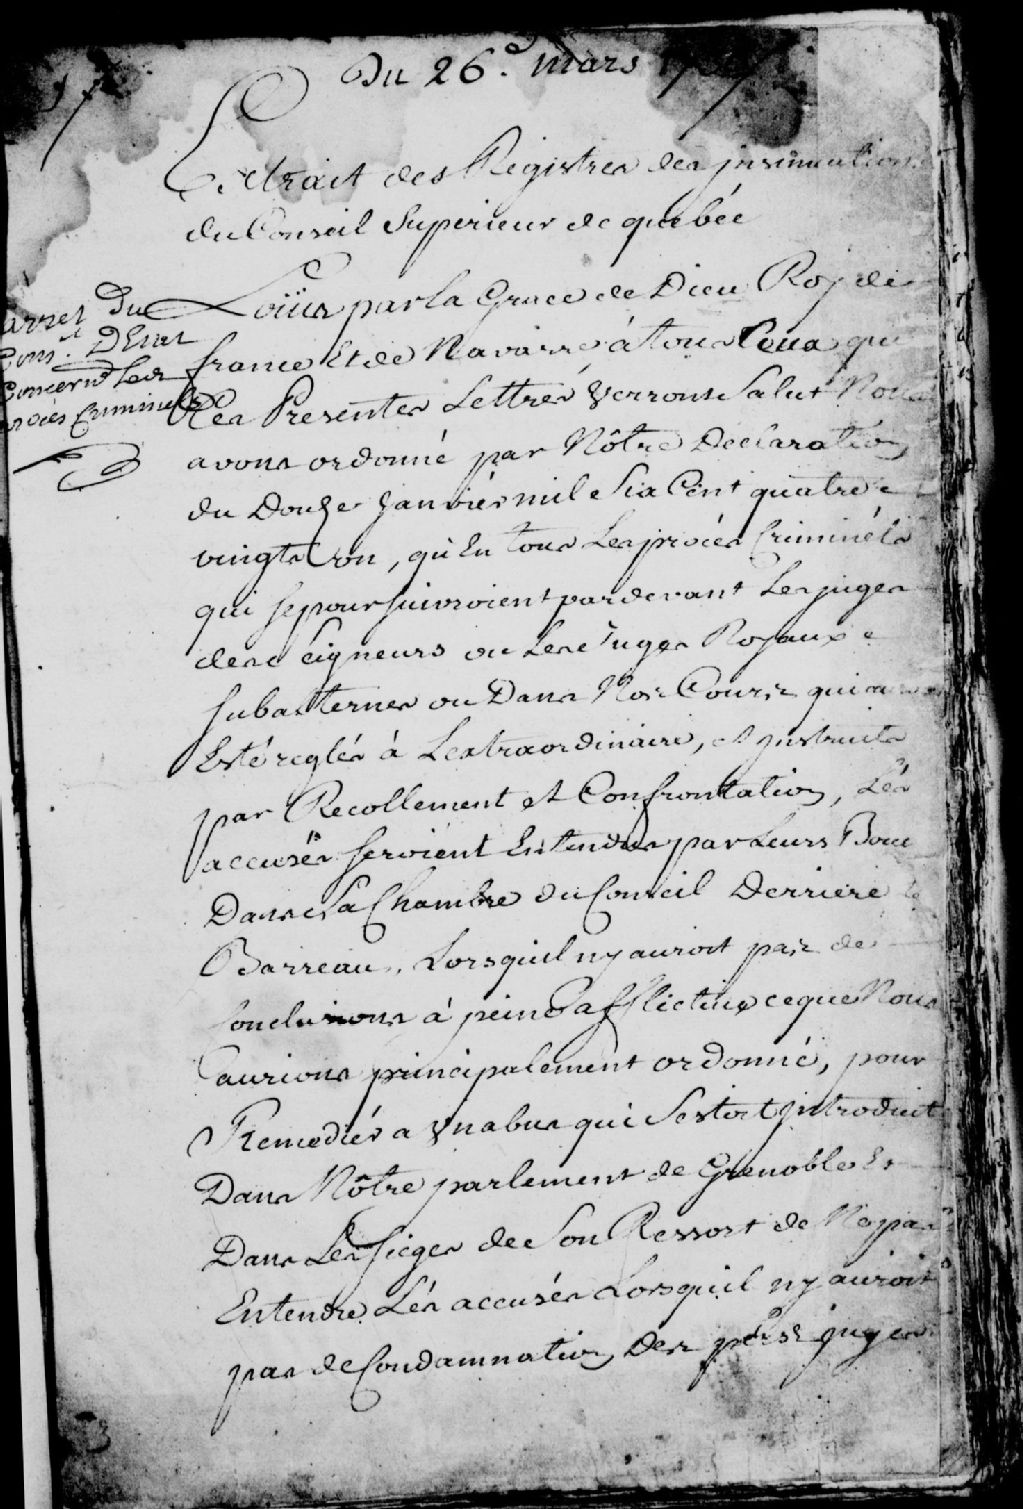 Du 26.e mars
Extrait des Registres des jnsinuations
du Conseil Superieur de quebéc
arrest Du
Cons.l DEtat
Concern.t Les
procès Criminels
Loüis par la Grace de Dieu Roy de
france Et de Navarre à tous Ceux qui
Ces Presentes Lettres Verront Salut Nous
avons ordonné par Nôtre Declaration
du Douze Janviér mil Six Cent quatre
vingts un, qu'En tous Les procés Criminéls
qui se poursuivroient pardevant Les juges
des Seigneurs ou Les Juges Royaux
subalternes ou Dans Nos Cours, qui
Esté reglés à Lextraordinaire, et jnstruits
par Recollement et Confrontation, Lés
accusés seroient Entendus par Leurs Bouc
Dans La Chambre du Conseil Derriere le
Barreau, Lorsquil ny auroit pas de
Conclusions à peine afflictive ce que Nous
aurions principalement ordonné, pour
Remediér a Vn abus qui Sestoit jntroduit
Dans Nôtre parlement de Grenoble Et
Dans Les sieges de Son Ressort de Ne pas
Entendre Lés accusés Lorsquil ny auroit
pas de Condamnation Des juges